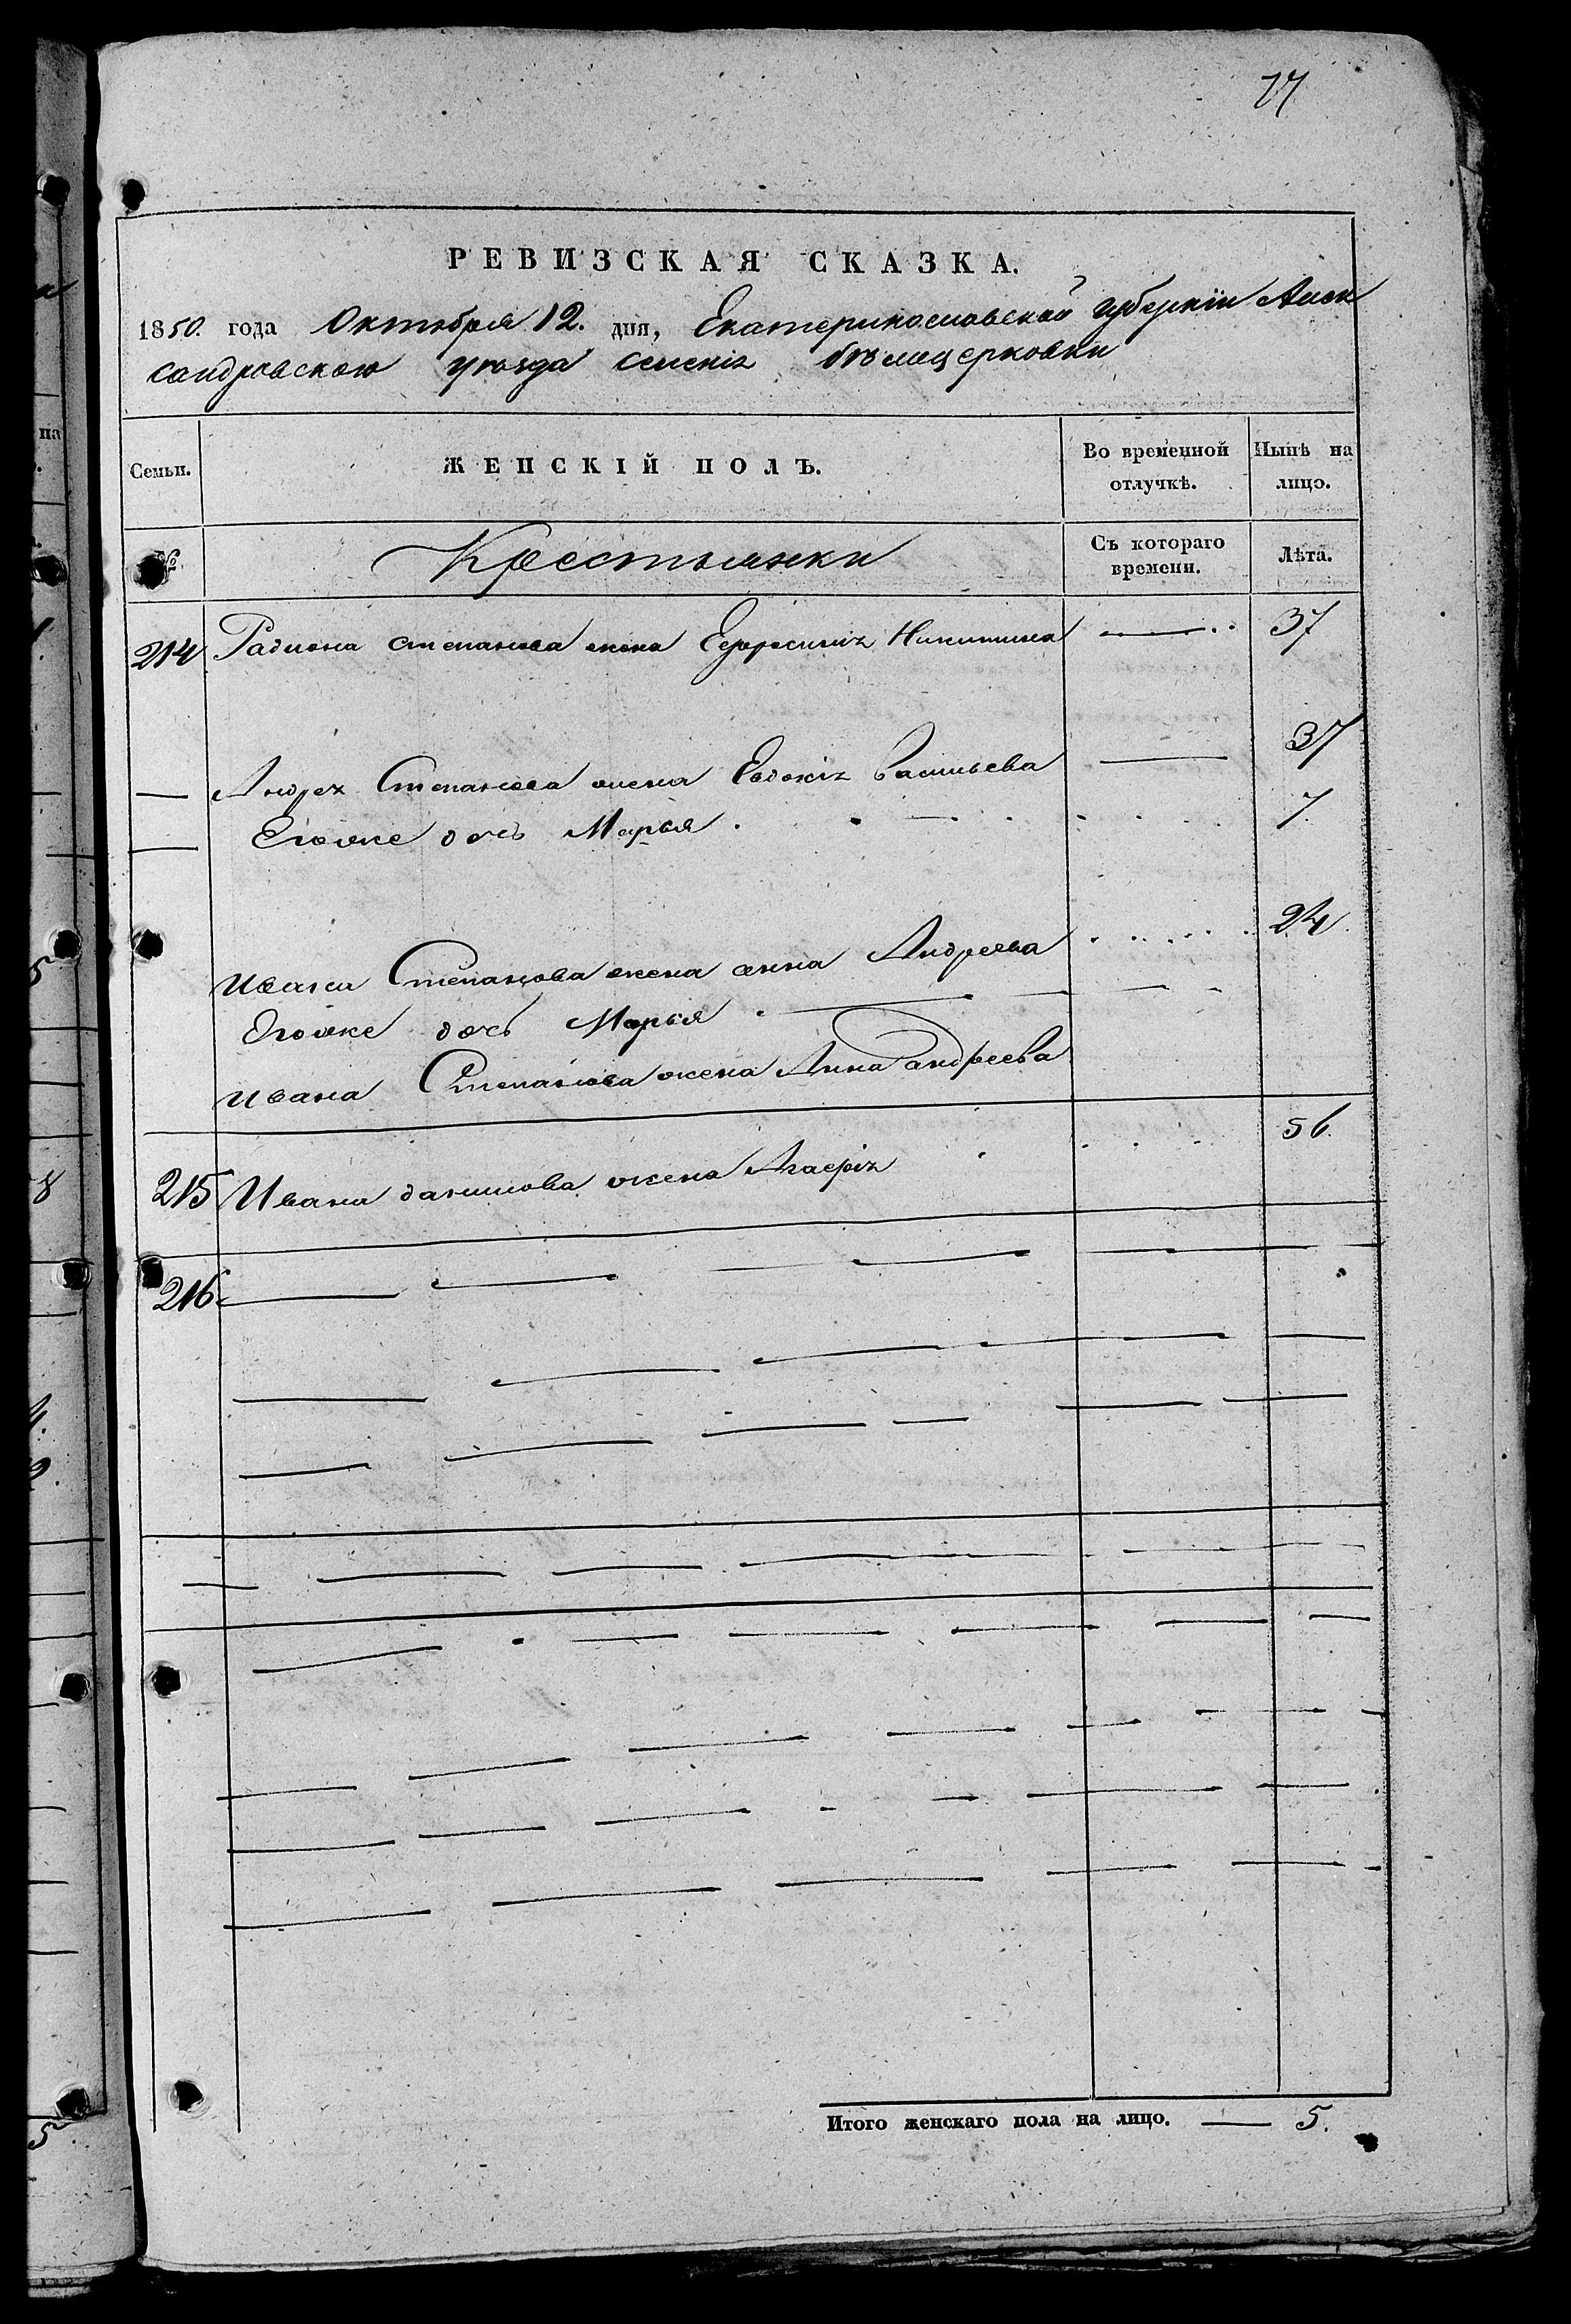 77
РЕВИЗСКАЯ СКАЗКА.
1850. года Октября 12. дня, Екатеринославской губернiи Алек
сандровскаго уѣзда селенiя бѣлецерковки
Семьи. ЖЕНСКІЙ ПОЛЪ. Во временной отлучкѣ. Нынѣ на лицо.
№ Крестьянки Съ котораго времени. Лѣта.
214 Радиона степанова жена Ефросинiя Никитина 37
Андрея Степанова жена Евдокiя Васильева 37
Егоже дочь Марья 7.
Ивана Степанова жена анна Андреева 24.
Егоже дочь Марья
Ивана Степанова жена Анна андреева
215 Ивана данилова жена Агафiя 56.
216
Итого женскаго пола на лицо. 5.